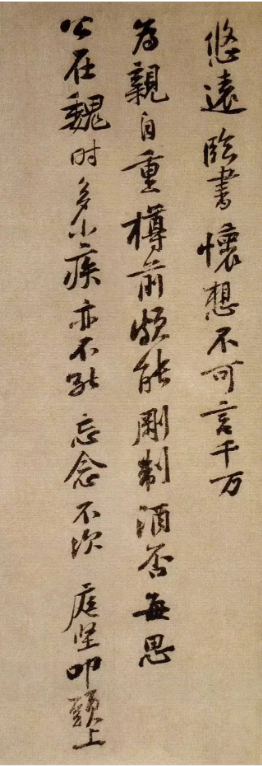 悠遠臨書懷想不可言千万
為親自重樽前頗能剛制酒否每思
公在魏时多小疾亦不能忘念不次 庭坚叩頭上